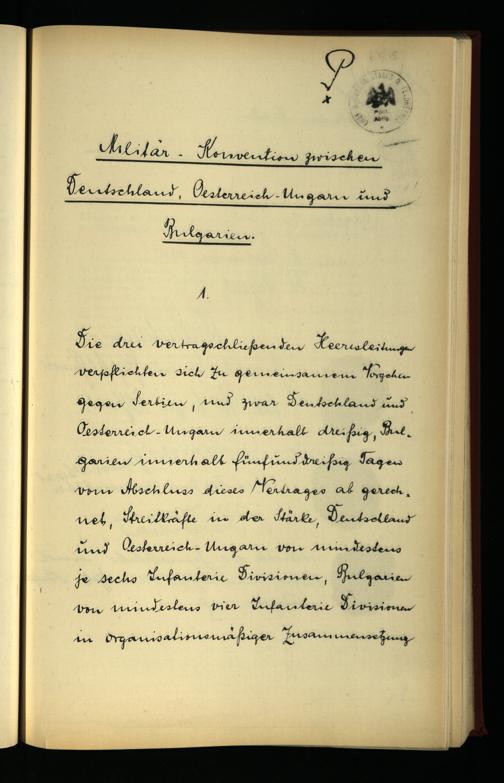 Militär-Konvention zwischen
Deutschland, Oesterreich-Ungarn und
Bulgarien.
1.
Die drei vertragschließenden Heeresleitungen
verpflichten sich zu gemeinsamem Vorgehen
gegen Serbien, und zwar Deutschland und
Oesterreich-Ungarn innerhalb dreißig, Bul-
garien innerhalb fünfunddreißig Tagen
vom Abschluss dieses Vertrages ab gerech-
net, Streitkräfte in der Stärke, Deutschland
und Oesterreich-Ungarn von mindestens
je sechs Infanterie Divisionen, Bulgarien
von mindestens vier Infanterie Divisionen
in organisationsmäßiger Zusammensetzung